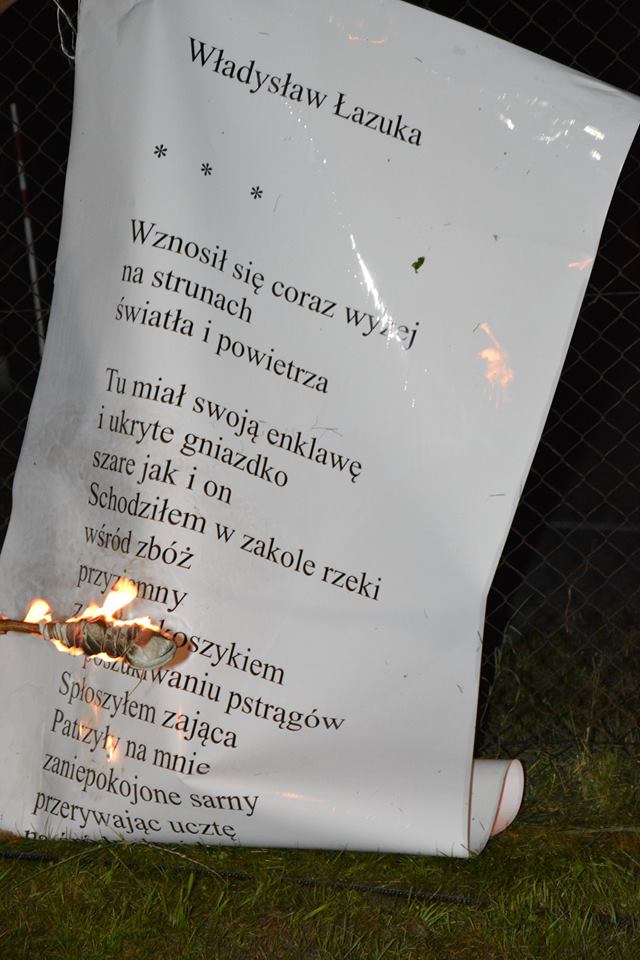 Władysław Łazuka
* * *
Wznosił się coraz wyżej
na strunach
światła i powietrza
Tu miał swoją enklawę
i ukryte gniazdko
szare jak i on
Schodziłem w zakole rzeki
wśród zbóż
przyziemny
koszykiem
poszukiwaniu pstrągów
Spłoszyłem zająca
Patrzyły na mnie
zaniepokojone sarny
przerywając ucztę